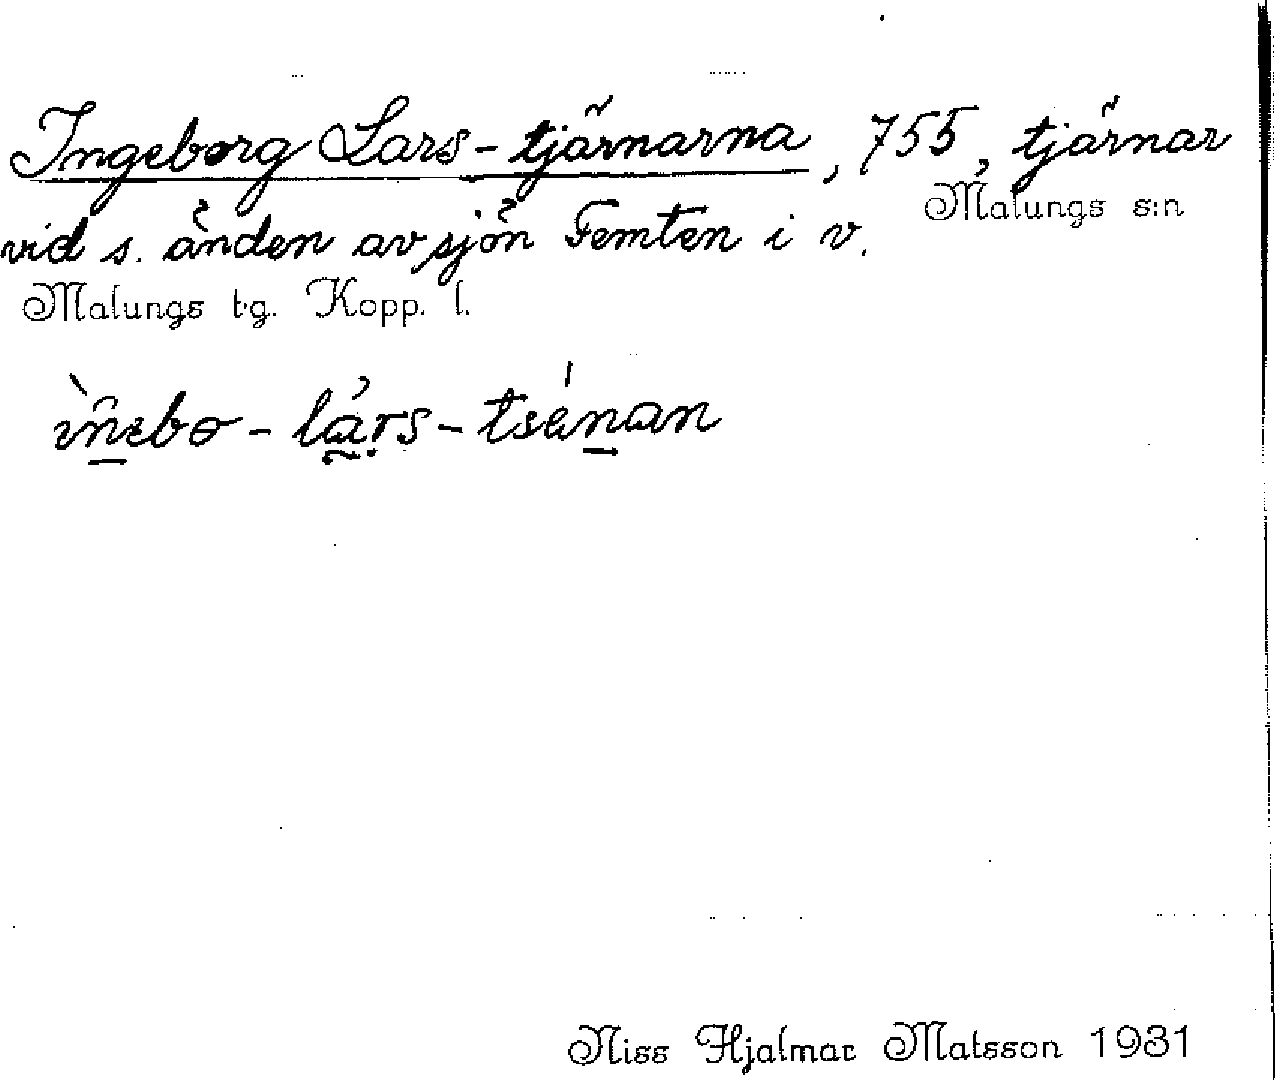 Ingeborg Lars-tjärnarna, 755, tjärnar
Malungs s:n
vid s. änden av sjön Femten i v.
Malungs tg. Kopp. l.
Niss Hjalmar Matsson 1931